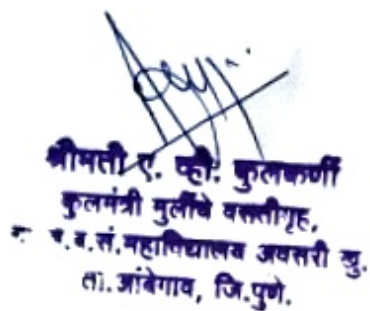 श्रीमती ए. व्ही. कुलकर्णी
कुलमंत्री मुलींचे वसतीगृह,
व.सं.महाविद्यालय अवसरी खु.
ता.आंबेगाव, जि.पुणे.